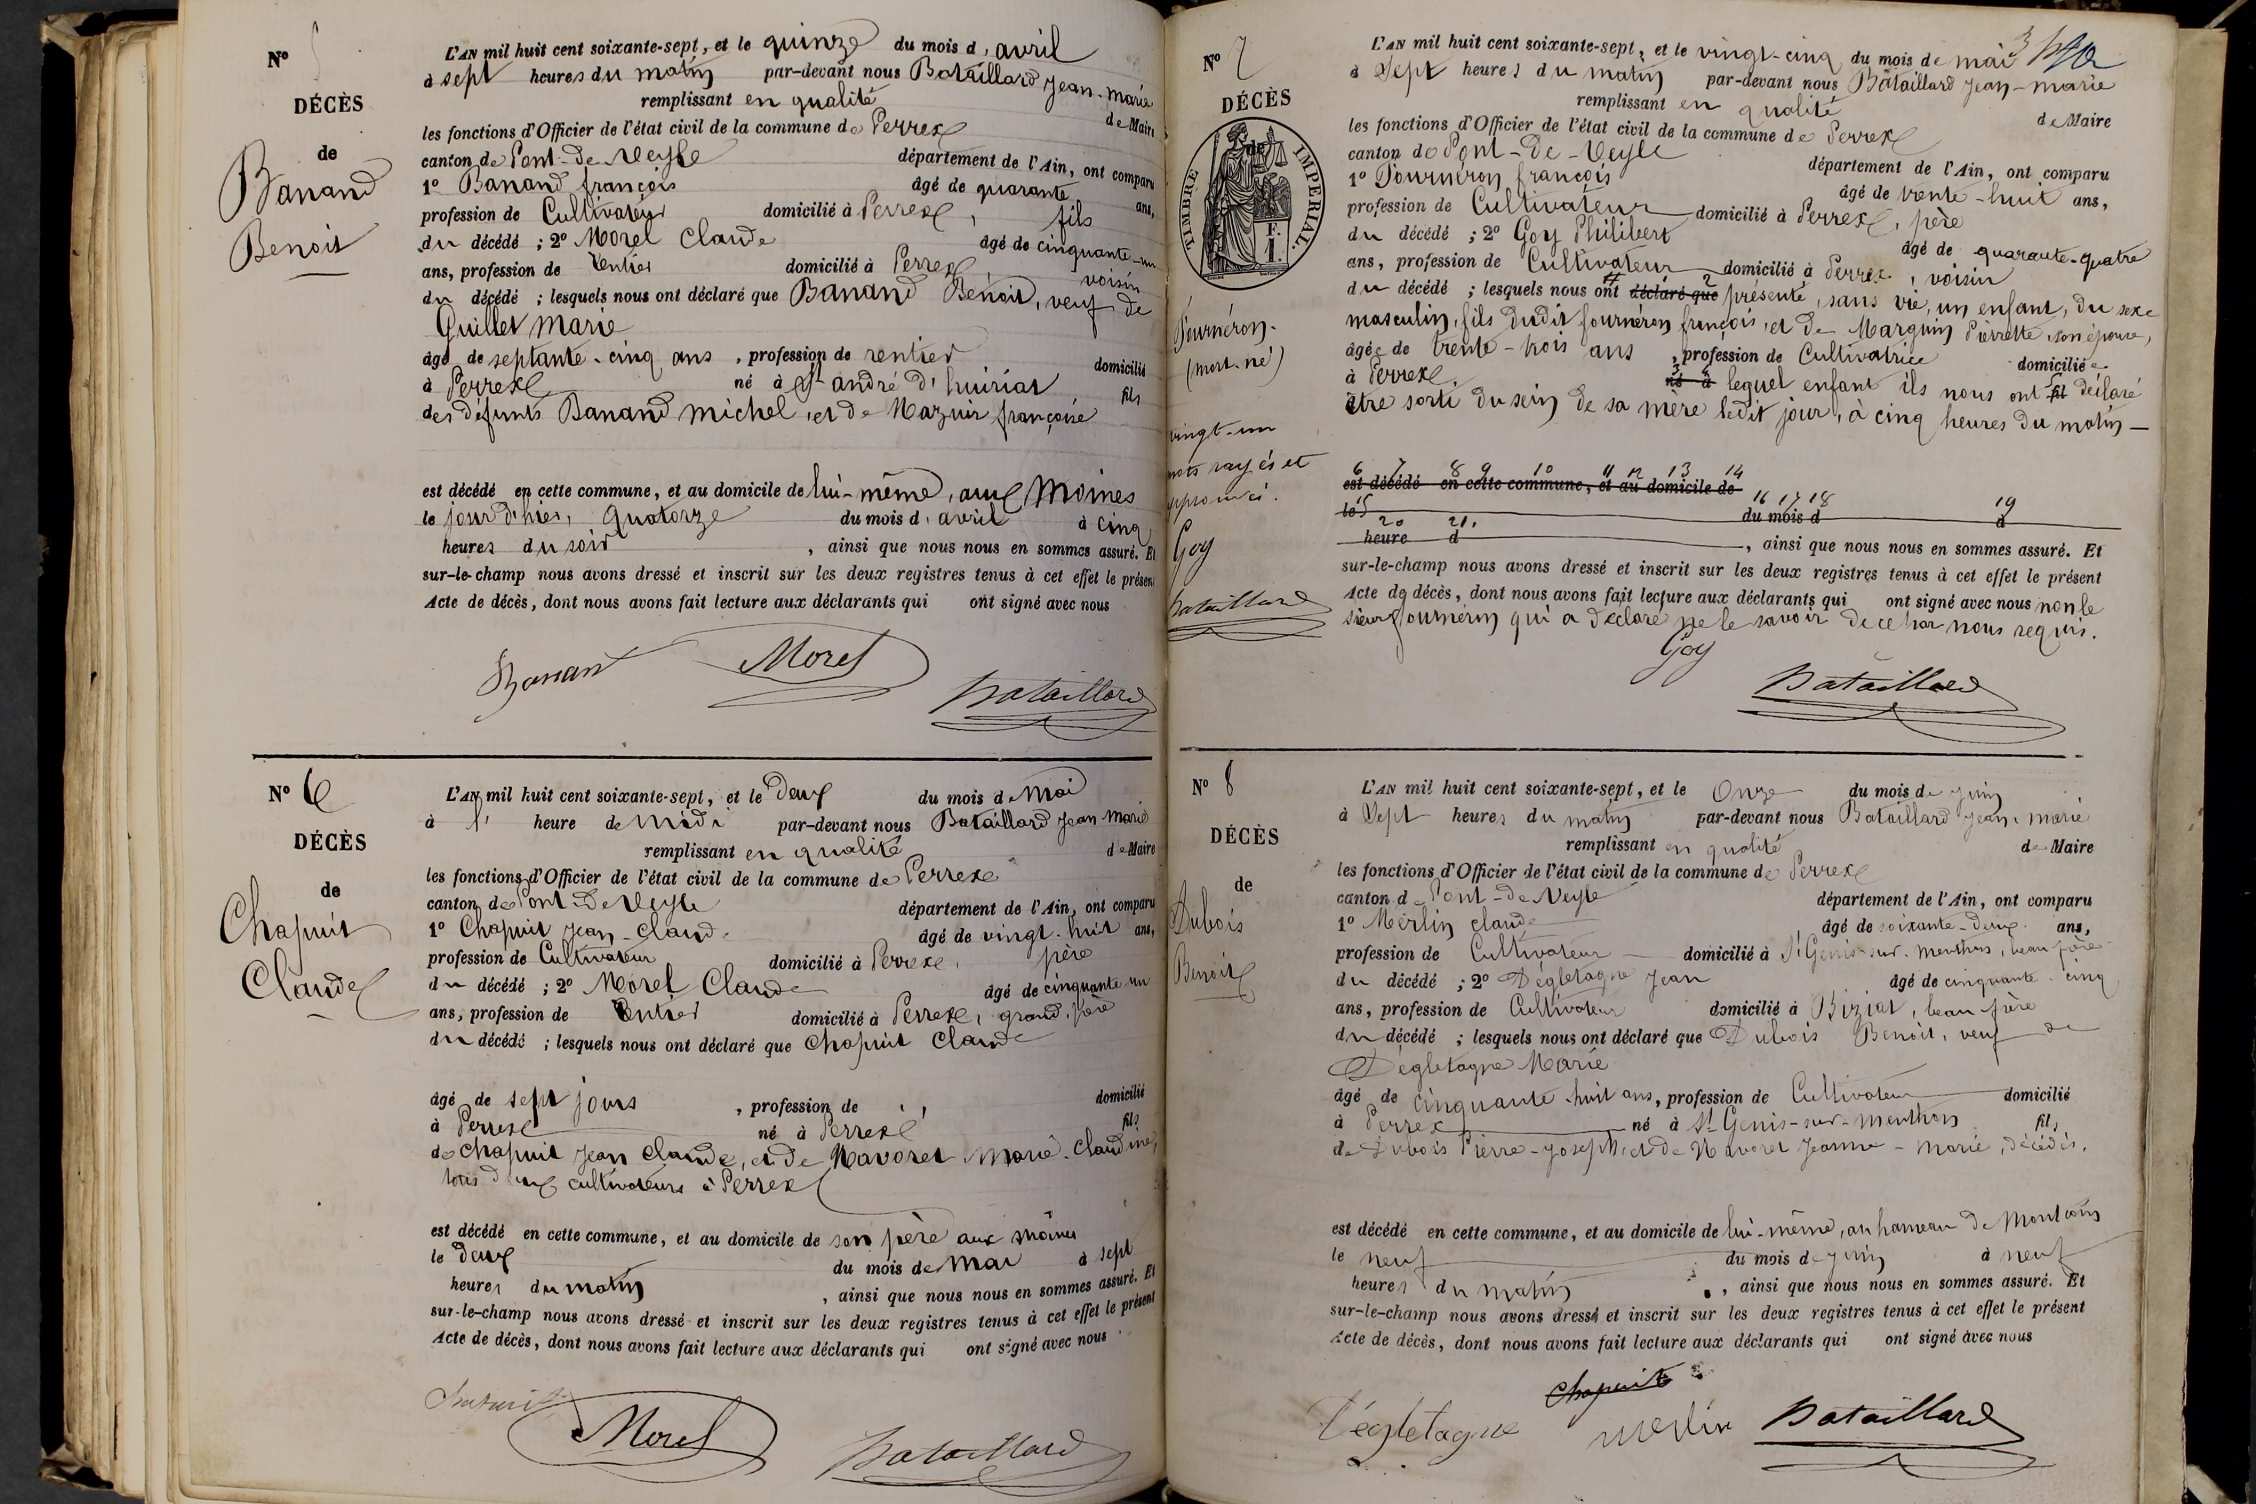 N° 5
DÉCÈS
de
Banand
Benoit
L'AN mil huit cent soixante-sept, et le quinze du mois d'avril
à sept heures du matin par-devant nous Bataillard Jean-marie
remplissant en qualité de Maire
les fonctions d'Officier de l'état civil de la commune de Perrex
canton de Pont-de-Veyle département de l'Ain, ont comparu
1° Banand françois âgé de quarante ans,
profession de Cultivateur domicilié à Perrex, fils
du décédé ; 2° Morel Claude âgé de cinquante-un
ans, profession de rentier domicilié à Perrex, voisin
du décédé ; lesquels nous ont déclaré que Banand Benoit, veuf de
Guillet marie
âgé de septante-cinq ans, profession de rentier domicilié
à Perrex né à St andré d'huiriat fils
des défunts Banand michel, et de Mazuir françoise
est décédé en cette commune, et au domicile de lui-même, aux Moines
le jour d'hier, quatorze du mois d'avril à cinq
heures du soir, ainsi que nous nous en sommes assuré. Et
sur-le-champ nous avons dressé et inscrit sur les deux registres tenus à cet effet le présent
Acte de décès, dont nous avons fait lecture aux déclarants qui ont signé avec nous
Banand Morel
Bataillard
N° 6
DÉCÈS
de
Chapuit
Claude
L'AN mil huit cent soixante-sept, et le deux du mois de Mai
à l' heure de Midi par-devant nous Bataillard Jean Marie
remplissant en qualité de Maire
les fonctions d'Officier de l'état civil de la commune de Perrex
canton de Pont-De Veyle département de l'Ain, ont comparu
1° Chapuit Jean-Claude âgé de vingt-huit ans,
profession de Cultivateur domicilié à Perrex, père
du décédé ; 2° Morel Claude âgé de cinquante un
ans, profession de Rentier domicilié à Perrex, grand-père
du décédé ; lesquels nous ont déclaré que Chapuit Claude
âgé de sept jours, profession de domicilié
à Perrex né à Perrex fils
de Chapuit Jean Claude, et de Navoret Marie-Claudine,
tous deux cultivateurs à Perrex
est décédé en cette commune, et au domicile de son père aux Moines
le deux du mois de Mai à sept
heures du matin, ainsi que nous nous en sommes assuré. Et
sur-le-champ nous avons dressé et inscrit sur les deux registres tenus à cet effet le présent
Acte de décès, dont nous avons fait lecture aux déclarants qui ont signé avec nous
Chapuit
Morel
Bataillard
N° 7
DÉCÈS
de
TIMBRE IMPERIAL.
F.
1.
fournéron-
(mort-né)
vingt-un
mots rayés et
approuvés.
Goy
Bataillard
L'AN mil huit cent soixante-sept, et le vingt-cinq du mois de mai
à Sept heures du matin par-devant nous Bataillard Jean-marie
remplissant en qualité de Maire
les fonctions d'Officier de l'état civil de la commune de Perrex
canton de Pont-de-Veyle département de l'Ain, ont comparu
1° Fournéron françois âgé de trente-huit ans,
profession de Cultivateur domicilié à Perrex, père
du décédé ; 2° Goy Philibert âgé de quarante-quatre
ans, profession de Cultivateur domicilié à Perrex, voisin
du décédé ; lesquels nous ont déclaré que présenté, sans vie, un enfant, du sexe
masculin, fils dudit fournéron françois, et de Marguin Pierrette, son épouse,
âgée de trente-trois ans, profession de Cultivatrice domiciliée
à Perrex né à lequel enfant ils nous ont fil déclaré
être sorti du sein de sa mère ledit jour, à cinq heures du matin —
6 7 8 9 10 11 12 13 14
est décédé en cette commune, et au domicile de
le 15 du mois d 16 17 18 19 d
20 21.
heure d, ainsi que nous nous en sommes assuré. Et
sur-le-champ nous avons dressé et inscrit sur les deux registres tenus à cet effet le présent
Acte de décès, dont nous avons fait lecture aux déclarants qui ont signé avec nous non le
sieur fournéron qui a déclaré ne le savoir de ce par nous requis.
Goy
Bataillard
N° 8
DÉCÈS
de
Dubois
Benoit
L'AN mil huit cent soixante-sept, et le Onze du mois de juin
à Sept heures du matin par-devant nous Bataillard Jean-marie
remplissant en qualité de Maire
les fonctions d'Officier de l'état civil de la commune de Perrex
canton de Pont-de-Veyle département de l'Ain, ont comparu
1° Merlin claude âgé de soixante-deux ans,
profession de Cultivateur domicilié à St Genis-sur-menthon, beau frère
du décédé ; 2° Dégletagne Jean âgé de cinquante-cinq
ans, profession de Cultivateur domicilié à Biziat, beau frère
du décédé ; lesquels nous ont déclaré que Dubois Benoit, veuf de
Dégletagne Marie
âgé de cinquante-huit ans, profession de Cultivateur domicilié
à Perrex né à St Genis-sur-menthon fils
de Dubois Pierre-Joseph, et de Navoret Jeanne-Marie, décédés.
est décédé en cette commune, et au domicile de lui-même, au hameau de Montcoin
le neuf du mois de juin à neuf
heures du matin, ainsi que nous nous en sommes assuré. Et
sur-le-champ nous avons dressé et inscrit sur les deux registres tenus à cet effet le présent
Acte de décès, dont nous avons fait lecture aux déclarants qui ont signé avec nous
Chapuit
Dégletagne merlin Bataillard